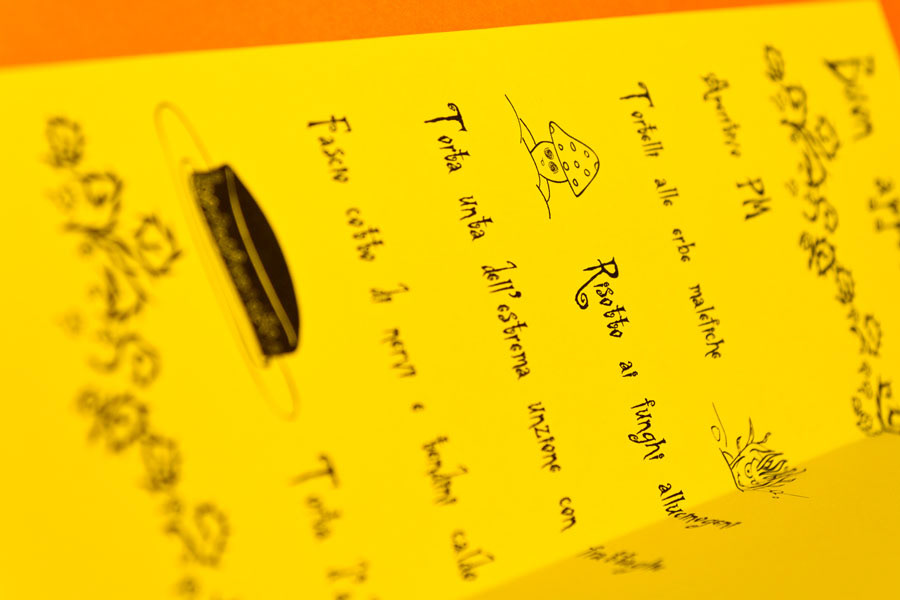 Buon
Aperitivo PM
Tortelli alle erbe malefiche
Risotto ai funghi allucinogeni
Torta unta dell'estrema unzione con
Fascio cotto di nervi e tendini
Torta